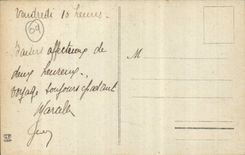 Vendredi 10 heures.
64
Baisers affectueux de
deux heureux.
voyage toujours épatant
Marcelle
M